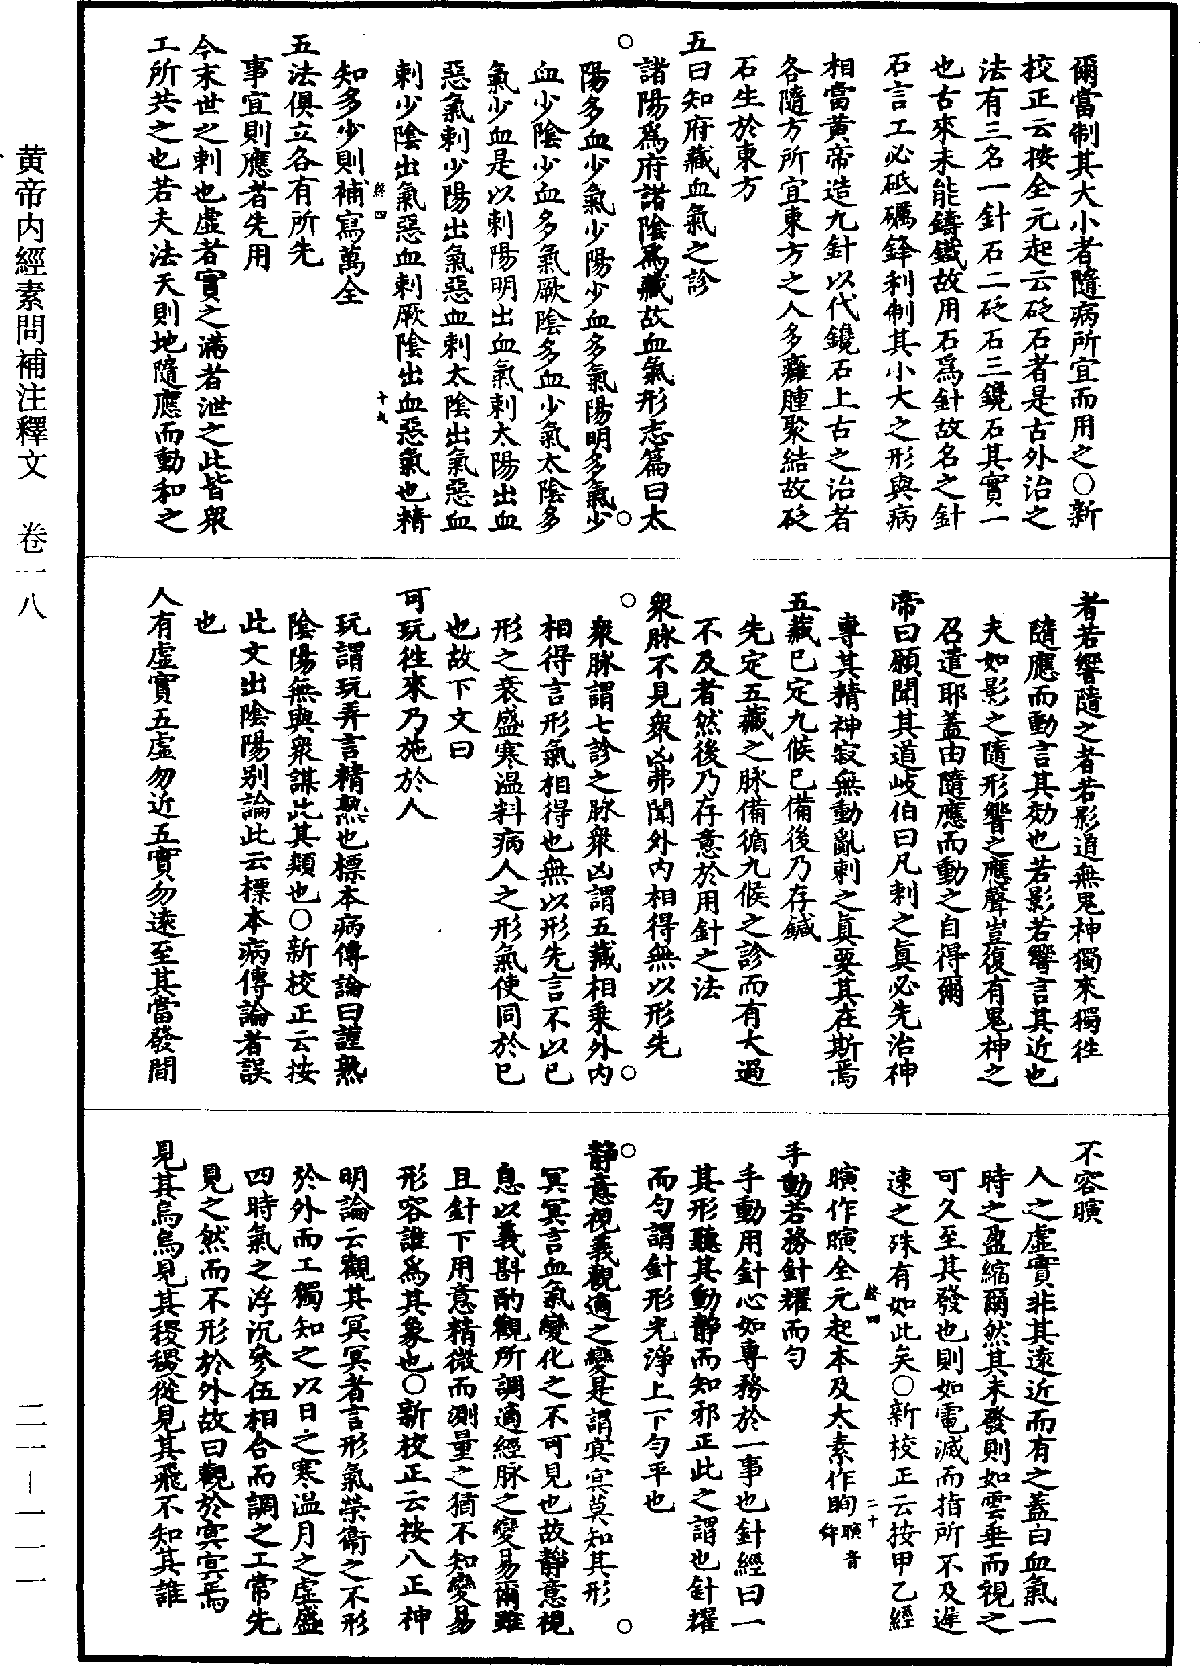 爾當制其大小者隨病所宜而用之○新
挍正云按全元起云砭石者是古外治之
法有三名一針石二砭石三鑱石其實一
也古來未能鑄鐵故用石爲針故名之針
石言工必砥礪鋒利制其小大之形與病
相當黄帝造九針以代鑱石上古之治者
各隨方所宜東方之人多癰腫聚結故砭
石生於東方
五曰知府藏血氣之診
諸陽爲府諸陰爲藏故血氣形志篇曰太
陽多血少氣少陽少血多氣陽明多氣少
血少陰少血多氣厥陰多血少氣太陰多
氣少血是以刺陽明出血氣刺太陽出血
惡氣刺少陽出氣惡血刺太陰出氣惡血
刺少陰出氣惡血刺厥陰出血惡氣也精
知多少則補寫萬全
五法俱立各有所先
事宜則應者先用
今末世之刺也虚者實之滿者泄之此皆衆
工所共之也若夫法天則地隨應而動和之
者若響隨之者若影道無鬼神獨來獨徃
隨應而動言其効也若影若響言其近也
夫如影之隨形響之應聲豈復有鬼神之
召遣耶蓋由隨應而動之自得爾
帝曰願聞其道岐伯曰凡刺之眞必先治神
專其精神寂無動亂刺之眞要其在斯焉
五藏已定九候已備後乃存鍼
先定五藏之脉備循九候之診而有大過
不及者然後乃存意於用針之法
衆脉不見衆凶弗聞外内相得無以形先
衆脉謂七診之脉衆凶謂五藏相乗外内
相得言形氣相得也無以形先言不以已
形之衰盛寒温料病人之形氣使同於已
也故下文曰
可玩徃來乃施於人
玩謂玩弄言精熟也標本病傳論曰謹熟
陰陽無與衆謀此其類也○新校正云按
此文出陰陽别論此云標本病傳論者誤
也
人有虚實五虚勿近五實勿逺至其當發間
不容瞚
人之虚實非其逺近而有之蓋由血氣一
時之盈縮爾然其未發則如雲垂而視之
可久至其發也則如電滅而指所不及遲
速之殊有如此矣○新校正云按甲乙經
瞚作瞚全元起本及太素作眴瞚音舜
手動若務針耀而匀
手動用針心如專務於一事也針經曰一
其形聽其動静而知邪正此之謂也針耀
而匀謂針形光浄上下匀平也
静意視義觀適之變是謂㝠㝠莫知其形
㝠㝠言血氣變化之不可見也故静意視
息以義斟酌觀所調適經脉之變易爾雖
且針下用意精微而測量之猶不知變易
形容誰爲其象也○新校正云按八正神
明論云觀其冥冥者言形氣榮衛之不形
於外而工獨知之以日之寒温月之虚盛
四時氣之浮沉參伍相合而調之工常先
見之然而不形於外故曰觀於㝠㝠焉
見其烏烏見其稷稷從見其飛不知其誰
黄帝内經素問補注釋文　卷一八
二一—一一一